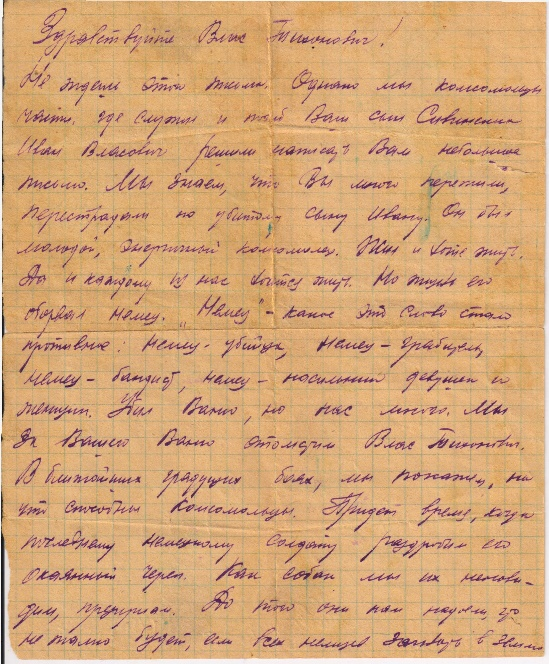 Здравствуйте Влас Тихонович!
Не ждали этого письма. Однако мы комсомольцы
части, где служил и Ваш сын Сивинский
Иван Власович решили написать Вам небольшое
письмо. Мы знаем, что Вы много пережили,
перестрадали по убитому сыну Ивану. Он был
молодой, энергичный комсомолец. Жил и хотел жить.
Да и каждому из нас хочется жить. Но жизнь его
оборвал немец. "Немец" - какое это слово стало
противное: немец - убийца, немец - грабитель,
немец - бандит, немец - насильник девушек и
женщин. Убил Ваню, но нас много. Мы
за Вашего Ваню отомстим Влас Тихонович.
В ближайших грядущих боях, мы покажем, на
что способны комсомольцы. Придет время, когда
последнему немецкому солдату раздробим его
окаянный череп. Как собак мы их ненави-
дим, презираем. До того они нам надоели, что
не жалко будет, если всех немцев в землю